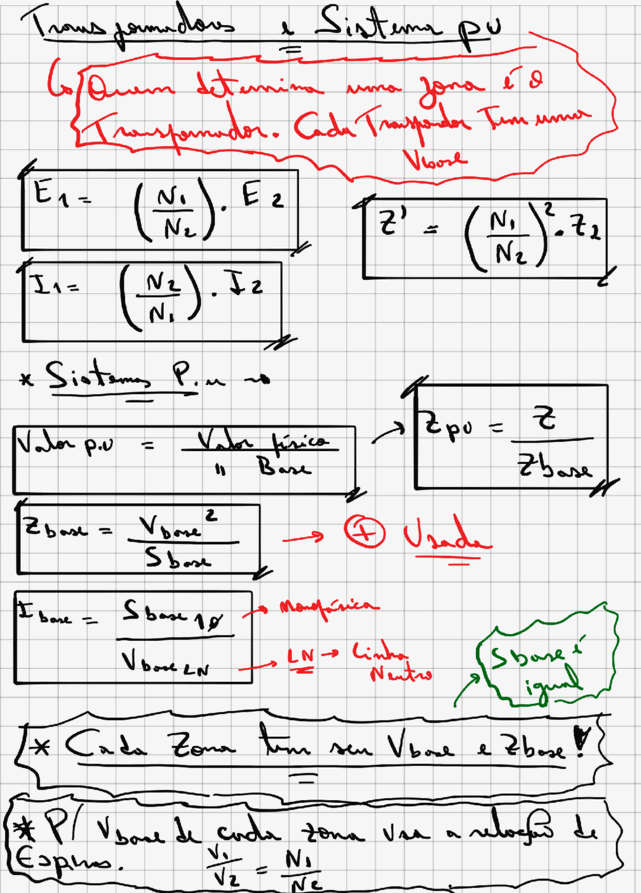 Transformadores e Sistema pu
↳ Quem determina uma zona é o
Transformador. Cada Transformador Tem uma
Vbase
E1 = (N1/N2) . E2
Z' = (N1/N2)² . Z2
I1 = (N2/N1) . I2
* Sistemas P.u →
Valor p.u = Valor físico / " Base
→ Zpu = Z / Zbase
Zbase = Vbase² / Sbase → + Usada
Ibase = Sbase 1ø / Vbase LN
→ Monofásica
→ LN → Linha
Neutro
Sbase é
igual
* Cada Zona tem seu Vbase e Zbase!
* P/ Vbase de cada zona usa a relação de
Espiras. V1/V2 = N1/N2